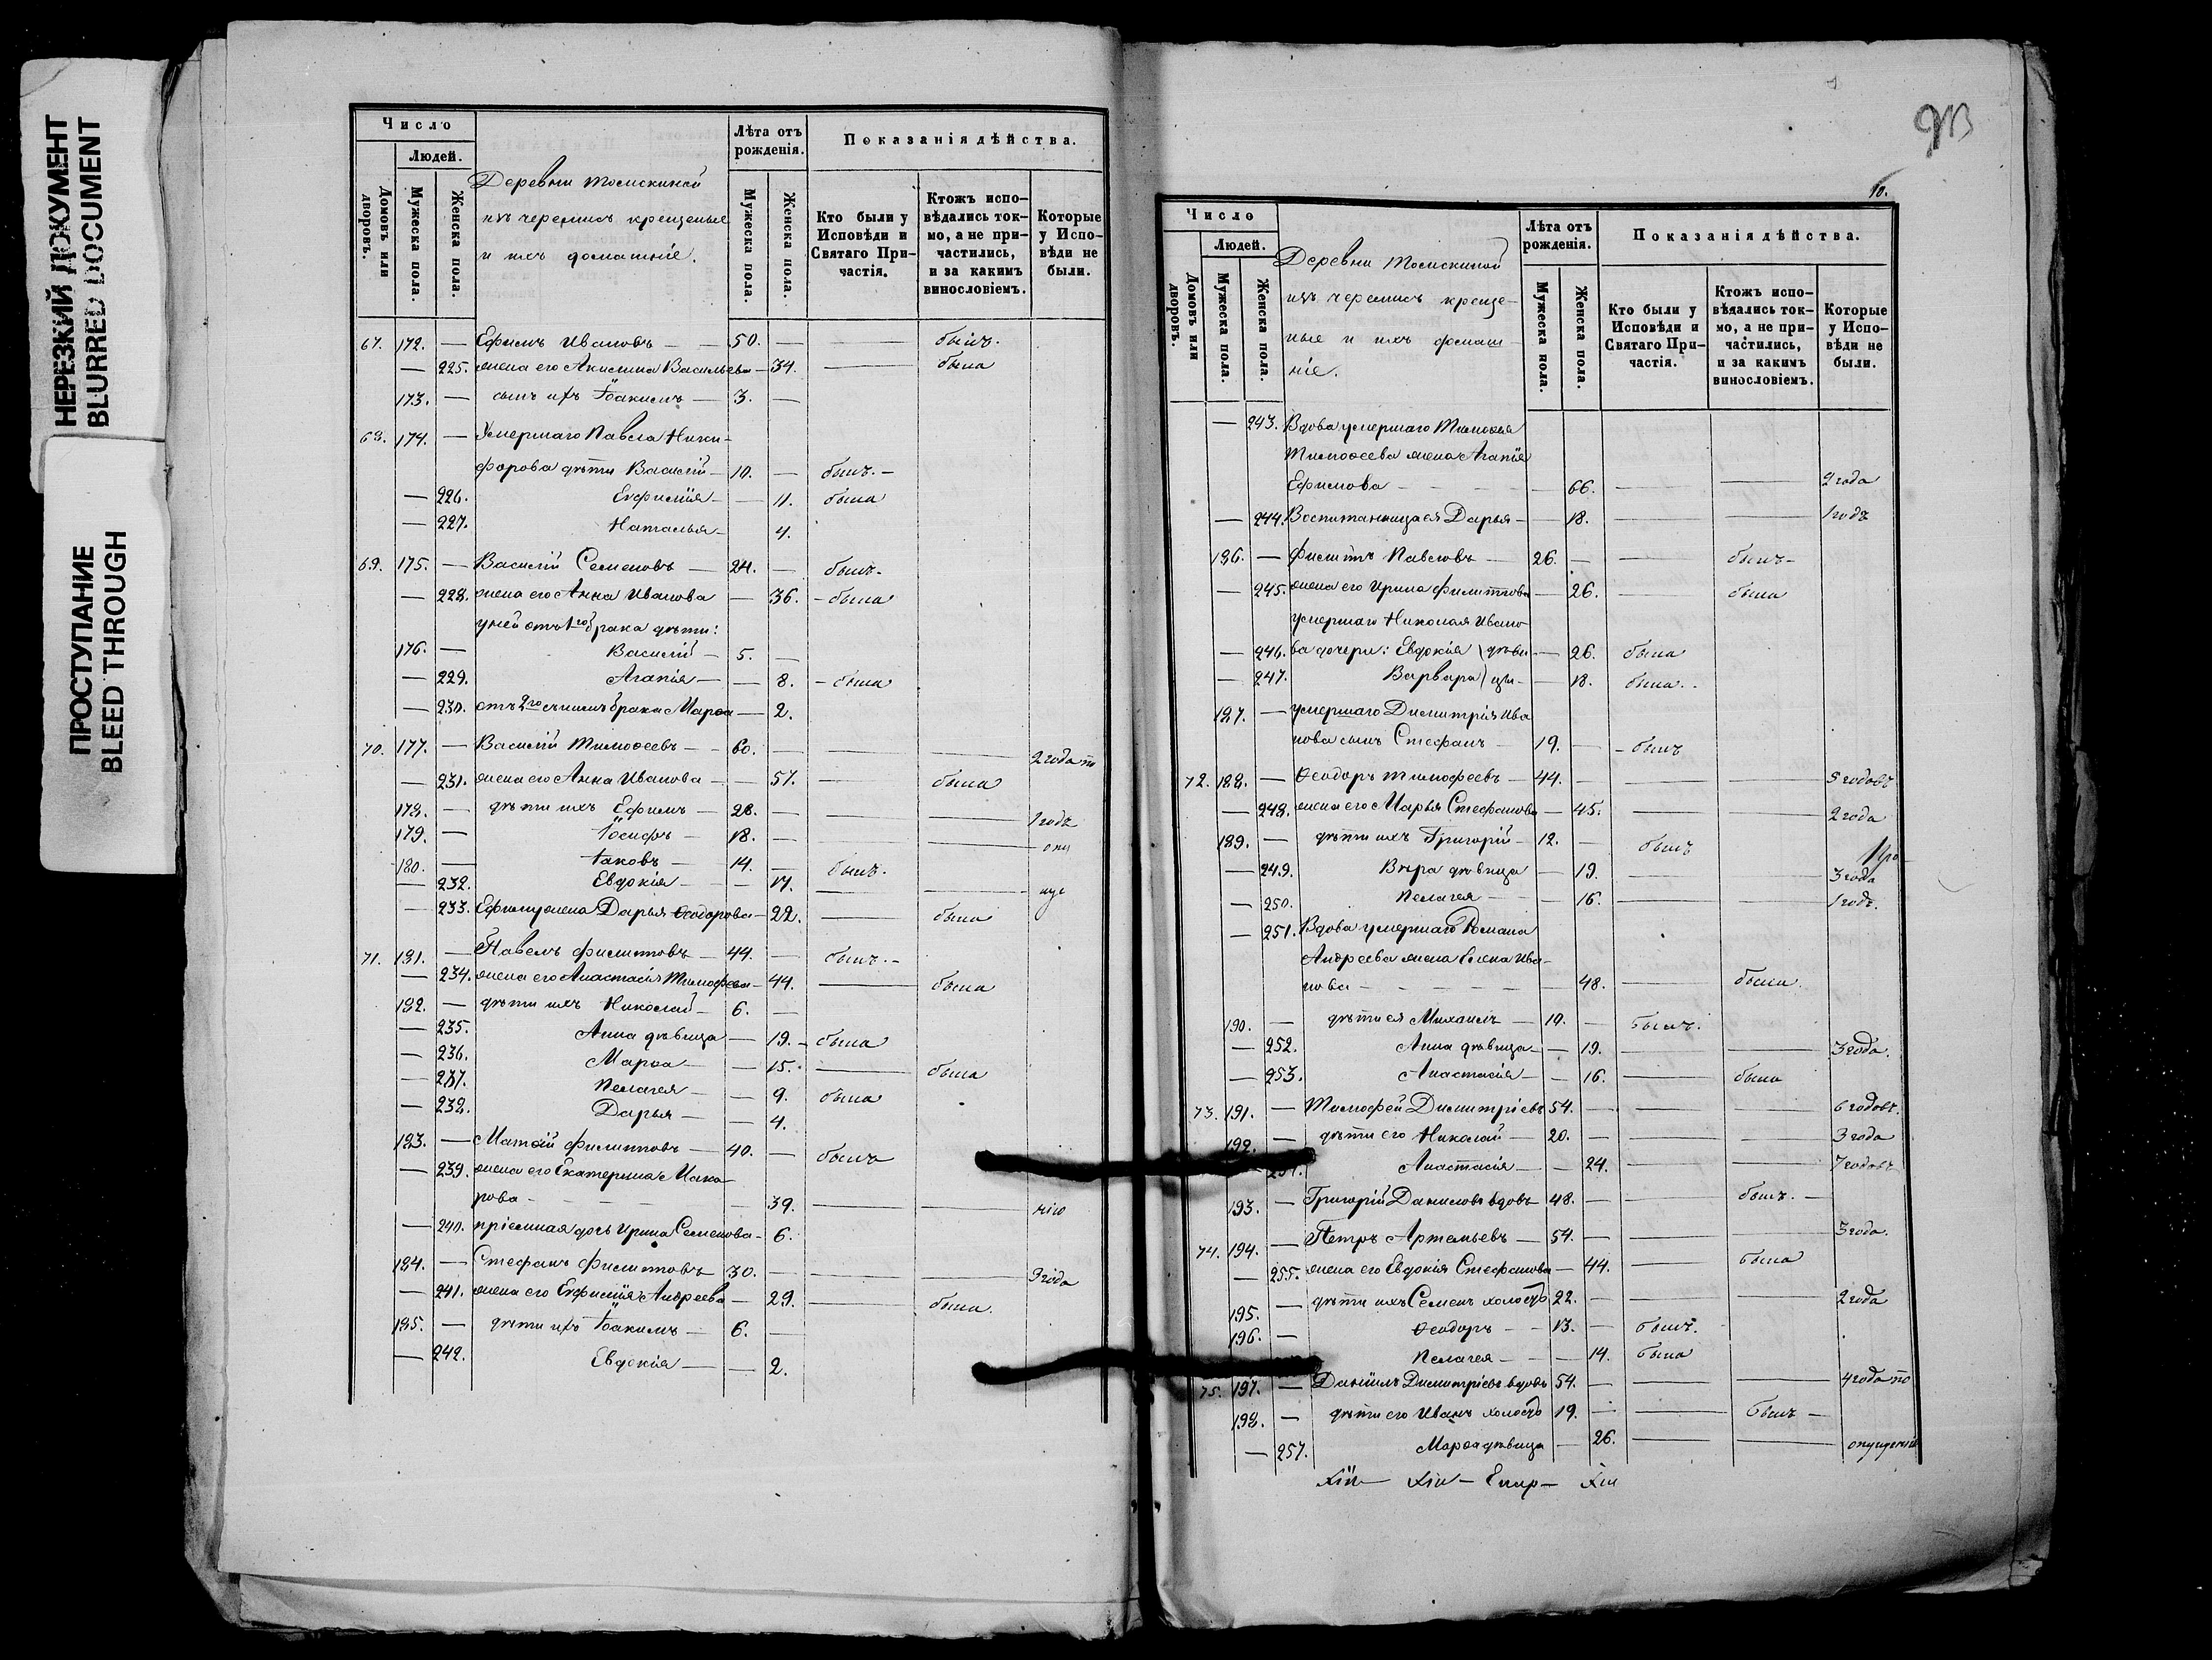 НЕРЕЗКИЙ ДОКУМЕНТ
BLURRED DOCUMENT
ПРОСТУПАНИЕ
BLEED THROUGH
Число
Людей.
Домовъ или дворовъ.
Мужеска пола.
Женска пола.
Деревни Томскиной
изъ черемисъ крещеные
и ихъ домашніе.
Лѣта отъ рожденія.
Мужеска пола.
Женска пола.
Показанія дѣйства.
Кто были у Исповѣди и Святаго Причастія.
Ктожъ исповѣдались токмо, а не причастились, и за какимъ винословіемъ.
Которые у Исповѣди не были.
67. 172. — Ефимъ Ивановъ — 50. — — былъ.
— 225. жена его Акилина Васильева — 34. — была
173. — сынъ ихъ Іоакимъ — 3. —
68. 174. — Умершаго Павла Ники-
форова дѣти Василій — 10. — былъ. —
— 226. Евфимія — — 11. была
— 227. Наталья — 4.
69. 175. — Василій Семеновъ — 24. — былъ. —
— 228. жена его Анна Иванова — 36. — была
у ней отъ 1го брака дѣти:
176. — Василій — 5. —
— 229. Агапія — — 8. — была
— 230. отъ 2го съ нимъ брака Марѳа — 2.
70. 177. — Василій Тимоѳеевъ — 60. — — — 2 года по
— 231. жена его Анна Иванова — — 57. — была
178. — дѣти ихъ Ефимъ — 28. — — — 1 годъ
179. — Іосифъ — 18. — — — опу
180. — Іаковъ — 14. — былъ.
— 232. Евдокія — — 17. — — ще
— 233. Ефиму жена Дарья Ѳеодорова — 22. — была
71. 181. — Павелъ Филипповъ — 44. — былъ. —
— 234. жена его Анастасія Тимофеева — 44. — была
182. — дѣти ихъ Николай — 6. —
— 235. Анна дѣвица — 19. — была
— 236. Марѳа — — 15. — была
— 237. Пелагея — — 9. была
— 238. Дарья — — 4.
183. — Матѳій Филипповъ — 40. — былъ
— 239. жена его Екатерина Мака-
рова — — 39. — — нію
— 240. пріемная дочь Ирина Семенова — 6.
184. — Стефанъ Филипповъ 30. — — — 3 года
— 241. жена его Евфимія Андреева — 29. — была.
185. — дѣти ихъ Іоакимъ — 6. —
— 242. Евдокія — — 2.
10.
Число
Людей.
Домовъ или дворовъ.
Мужеска пола.
Женска пола.
Деревни Томскиной
изъ черемисъ креще-
ные и ихъ домаш-
ніе.
Лѣта отъ рожденія.
Мужеска пола.
Женска пола.
Показанія дѣйства.
Кто были у Исповѣди и Святаго Причастія.
Ктожъ исповѣдались токмо, а не причастились, и за какимъ винословіемъ.
Которые у Исповѣди не были.
— 243. Вдова умершаго Тимоѳея
Тимоѳеева жена Агапія
Ефимова — — 66. — — 2 года
— 244. Воспитанница ея Дарья — — 18. — — 1 годъ
186. — Филиппъ Павловъ — 26. — — былъ —
— 245. жена его Ирина Филиппова — 26. — была
умершаго Николая Ивано-
— 246. ва дочери: Евдокія } дѣви — 26. была
— 247. Варвара } цы — — 18. была.
187. — умершаго Димитрія Ива
нова сынъ Стефанъ — 19. — — былъ
72. 188. — Ѳеодоръ Тимофеевъ — 44. — — — 5 годовъ
— 248. жена его Марья Стефанова — 45. — — 2 года
189. — дѣти ихъ Григорій — 12. — былъ
— 249. Вѣра дѣвица — 19. — — 3 года
— 250. Пелагея — — 16. — — 1 годъ.
— 251. Вдова умершаго Романа
Андреева жена Елена Ива-
нова — — — — 48. — была.
190. — дѣти ея Михаилъ — 10. — былъ.
— 252. Анна дѣвица — — 19. — — 3 года.
— 253. Анастасія — — 16. — была
73. 191. — Тимофей Димитріевъ 54. — — — 6 годовъ.
192. — дѣти его Николай — 20. — — — 3 года
254. Анастасія — — 24. — — 7 годовъ
193. — Григорій Даниловъ вдовъ — 48. — — былъ. —
74. 194. — Петръ Артемьевъ — 54. — — — 3 года.
— 255. жена его Евдокія Стефанова — 44. — была
195. — дѣти ихъ Семенъ холостъ 22. — — — 2 года
196. — Ѳеодоръ — — 13. — былъ.
Пелагея — — — 14. была
75. 197. — Даніилъ Димитріевъ вдовъ 54. — — — 4 года по
198. — дѣти его Иванъ холостъ 19. — — былъ —
— 257. Марѳа дѣвица — 26. — — опущенію